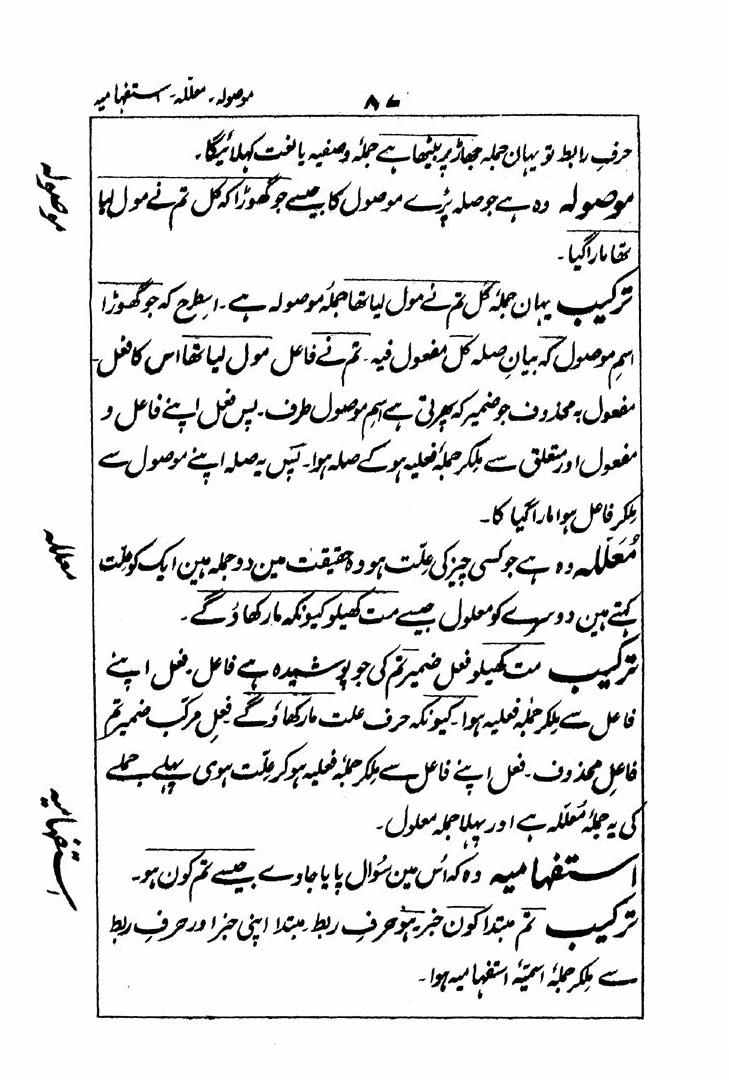 موصولہ۔ معلّلہ۔ استفہامیہ
۸۷
حرفِ رابط تو یہان جملہ جھاڑ پر بیٹھا ہے جملۂ وصفیہ یا نعت کہلائیگا۔
موصولہ
موصولہ وہ ہے جو صلہ پڑے موصول کا جیسے جو گھوڑا کہ کل تم نے مول لیا
تھا مارا گیا۔
ترکیب یہان جملۂ کل تم نے مول لیا تھا جملۂ موصولہ ہے۔ اسطرح کہ جو گھوڑا
اسمِ موصول کہ بیانِ صلہ کل مفعول فیہ۔ تم نے فاعل مول لیا تھا اس کا فعل
مفعول بہ محذوف جو ضمیر کہ پھرتی ہے اسمِ موصول طرف۔ پس فعل اپنے فاعل و
مفعول اور متعلق سے ملکر جملۂ فعلیہ ہو کے صلہ ہوا۔ پس یہ صلہ اپنے موصول سے
ملکر فاعل ہوا مارا گیا کا۔
معللہ
مُعَلّلہ وہ ہے جو کسی چیز کی عِلّت ہو وہ حقیقت مین دو جملہ ہین ایک کو علّت
کہتے ہین دوسرے کو معلول جیسے مت کھیلو کیونکہ مار کھاؤ گے۔
ترکیب مت کھیلو فعل ضمیر تم کی جو پوشیدہ ہے فاعل۔ فعل اپنے
فاعل سے ملکر جملۂ فعلیہ ہوا۔ کیونکہ حرف علت مار کھاؤ گے فعلِ مرکّب ضمیر تم
فاعلِ محذوف۔ فعل اپنے فاعل سے ملکر جملۂ فعلیہ ہو کر علّت ہوی پہلے جملے
کی یہ جملۂ مُعَلّلہ ہے اور پہلا جملہ معلول۔
استفہامیہ
استفہامیہ وہ کہ اُس مین سوال پایا جاوے جیسے تم کون ہو۔
ترکیب تم مبتدا کون خبر ہو حرفِ ربط۔ مبتدا اپنی خبر اور حرفِ ربط
سے ملکر جملۂ اسمیّۂ استفہامیہ ہوا۔